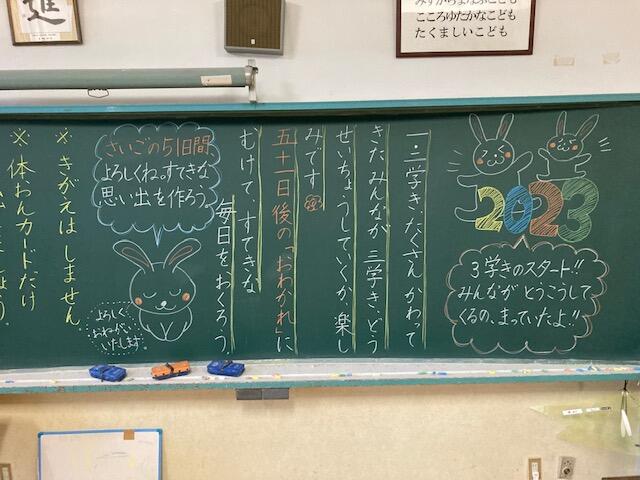 進
こころゆたかなこども
たくましいこども
2023
3学きのスタート!!
みんなが とうこうして
くるの、まっていたよ!!
一・二学き、たくさん かわって
きた みんなが 三学き、どう
せいちょうしていくか、楽し
みです
五十一日後の「おわかれ」に
むけて、すてきな
毎日を おくろう
さいごの51日間
よろしくね。すてきな
思い出を作ろう。
よろしく
おねがい
いたします
※ きがえは しません
※ 体おんカードだけ